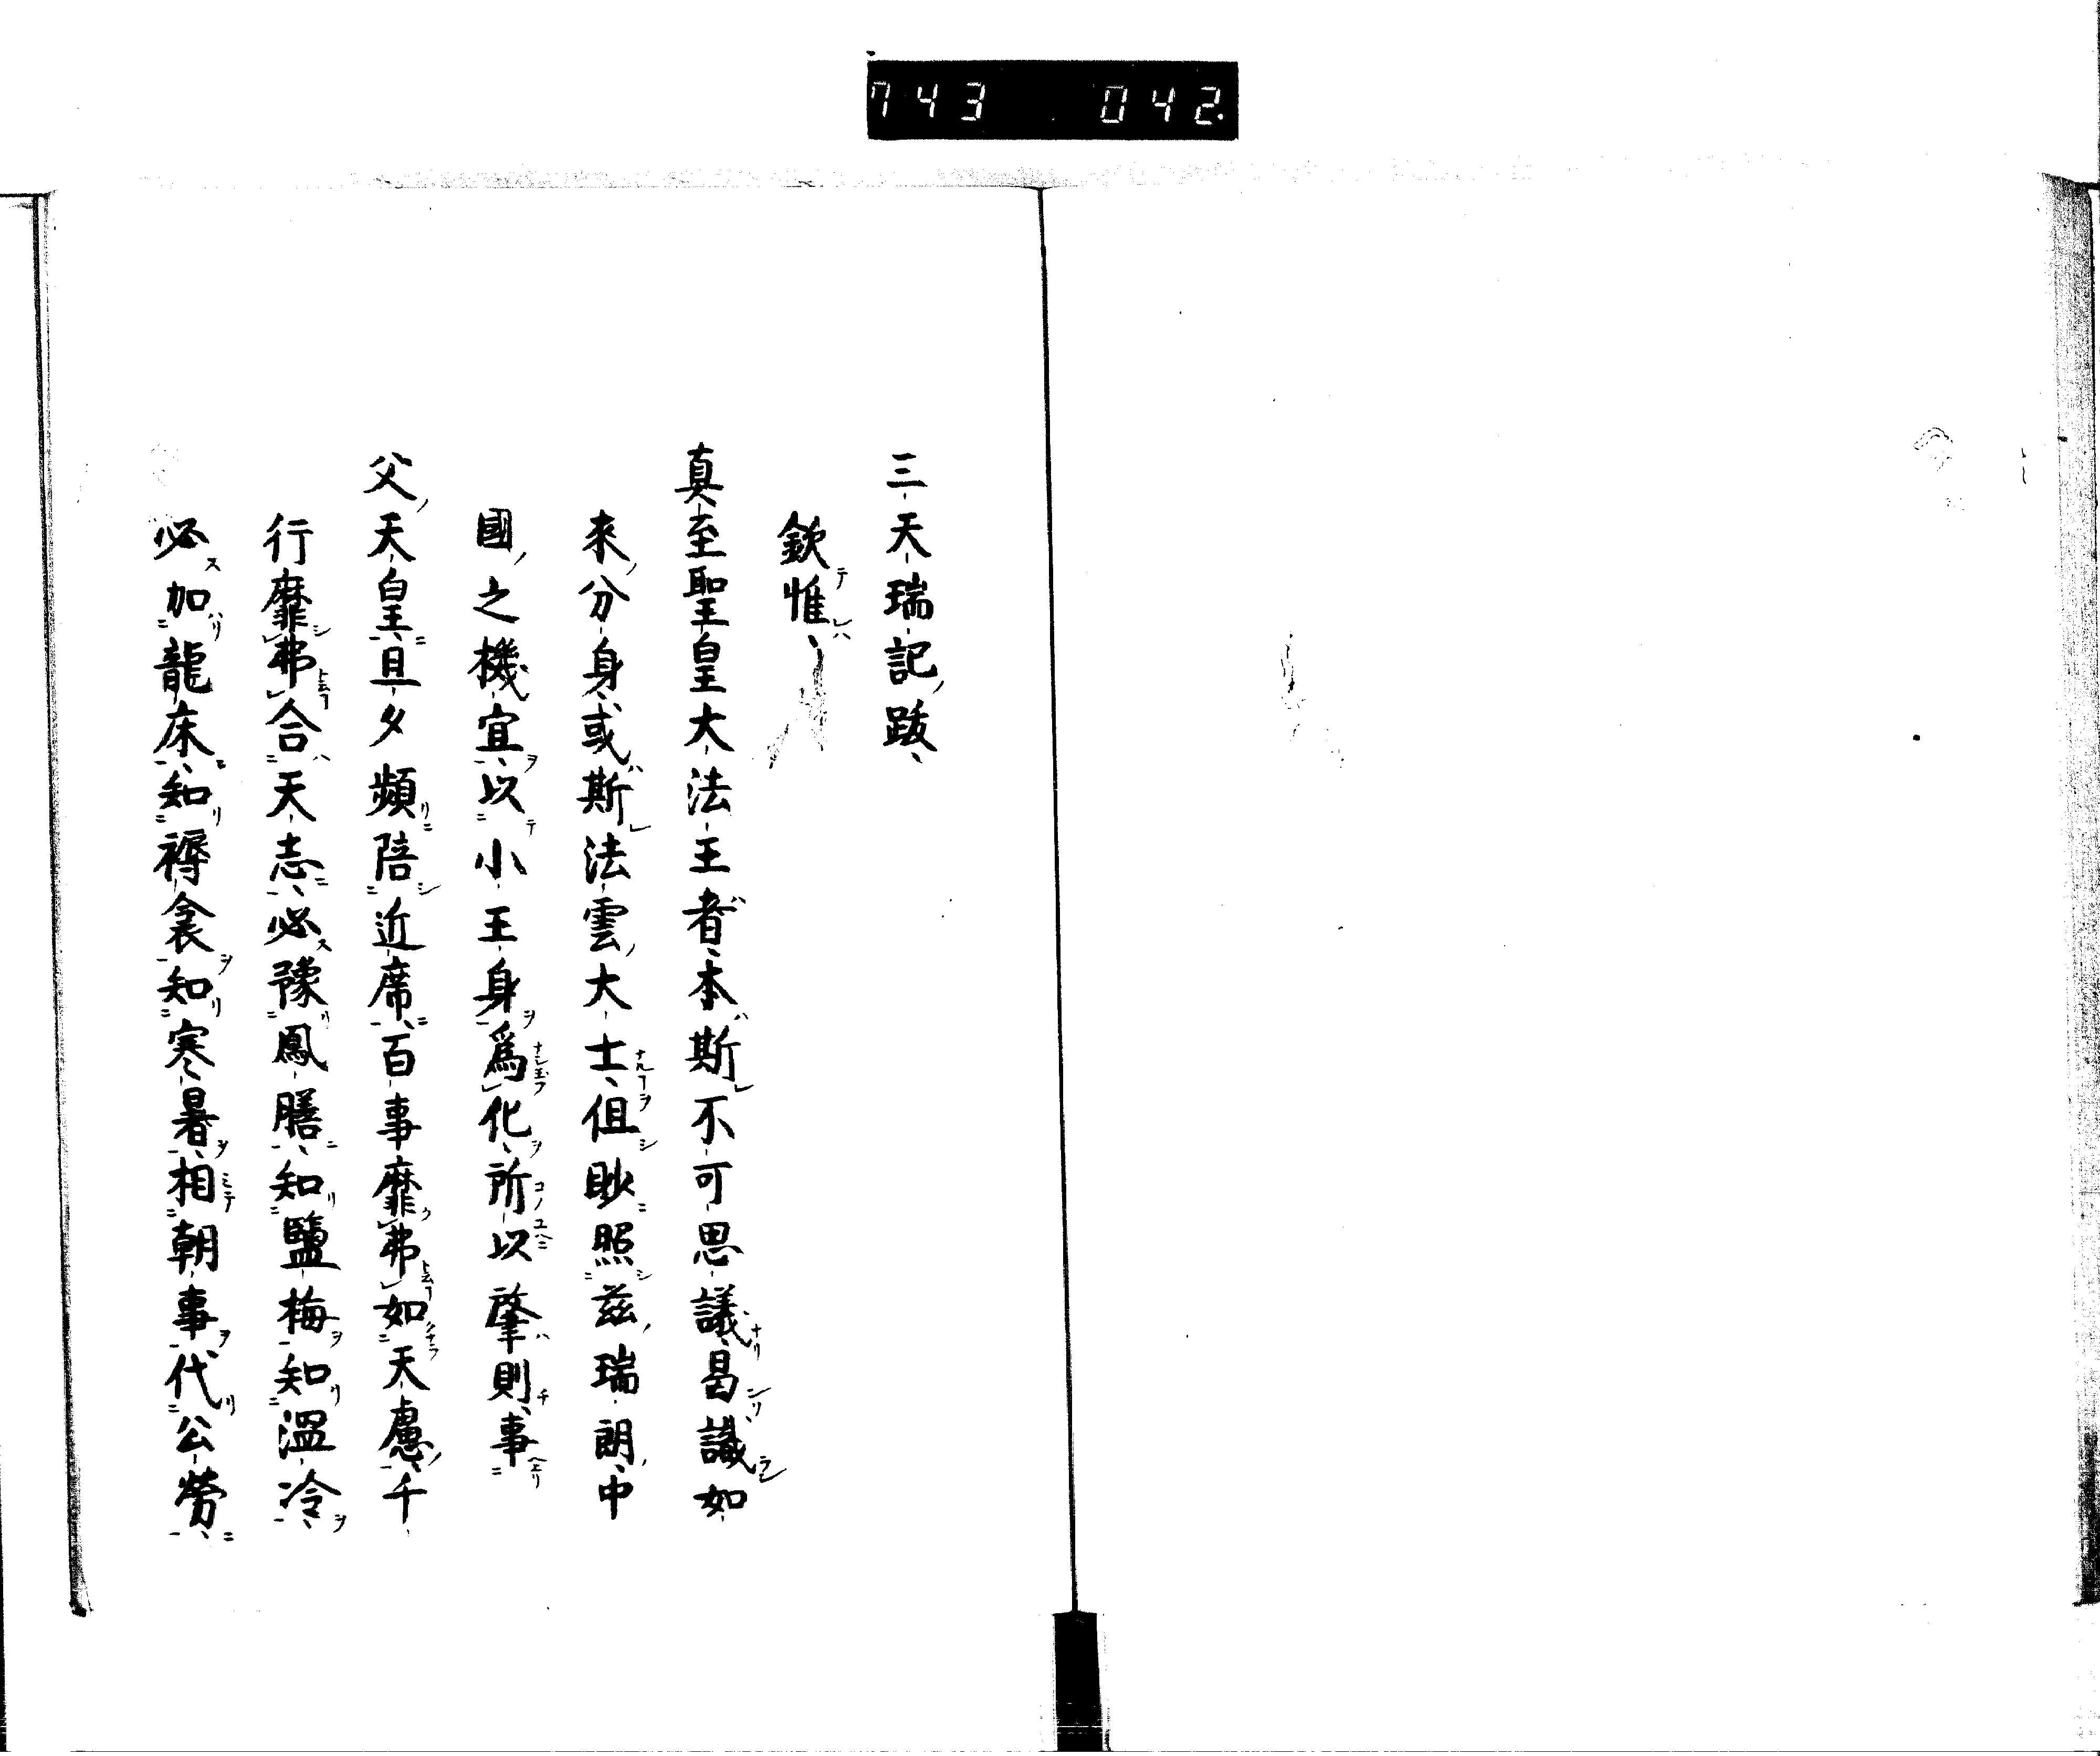 743 042.
三天瑞記跋
欽惟
真至聖皇大法王者本斯不可思議曷識如
來分身或斯法雲大士伹眇照茲瑞朗中
國之機宜以小王身為化所以肇則事
父天皇旦夕頻陪近席百事靡弗如天慮千
行靡弗合天志必豫鳳膳知鹽梅知溫冷
必加龍床知褥衾知寒暑相朝事代公勞